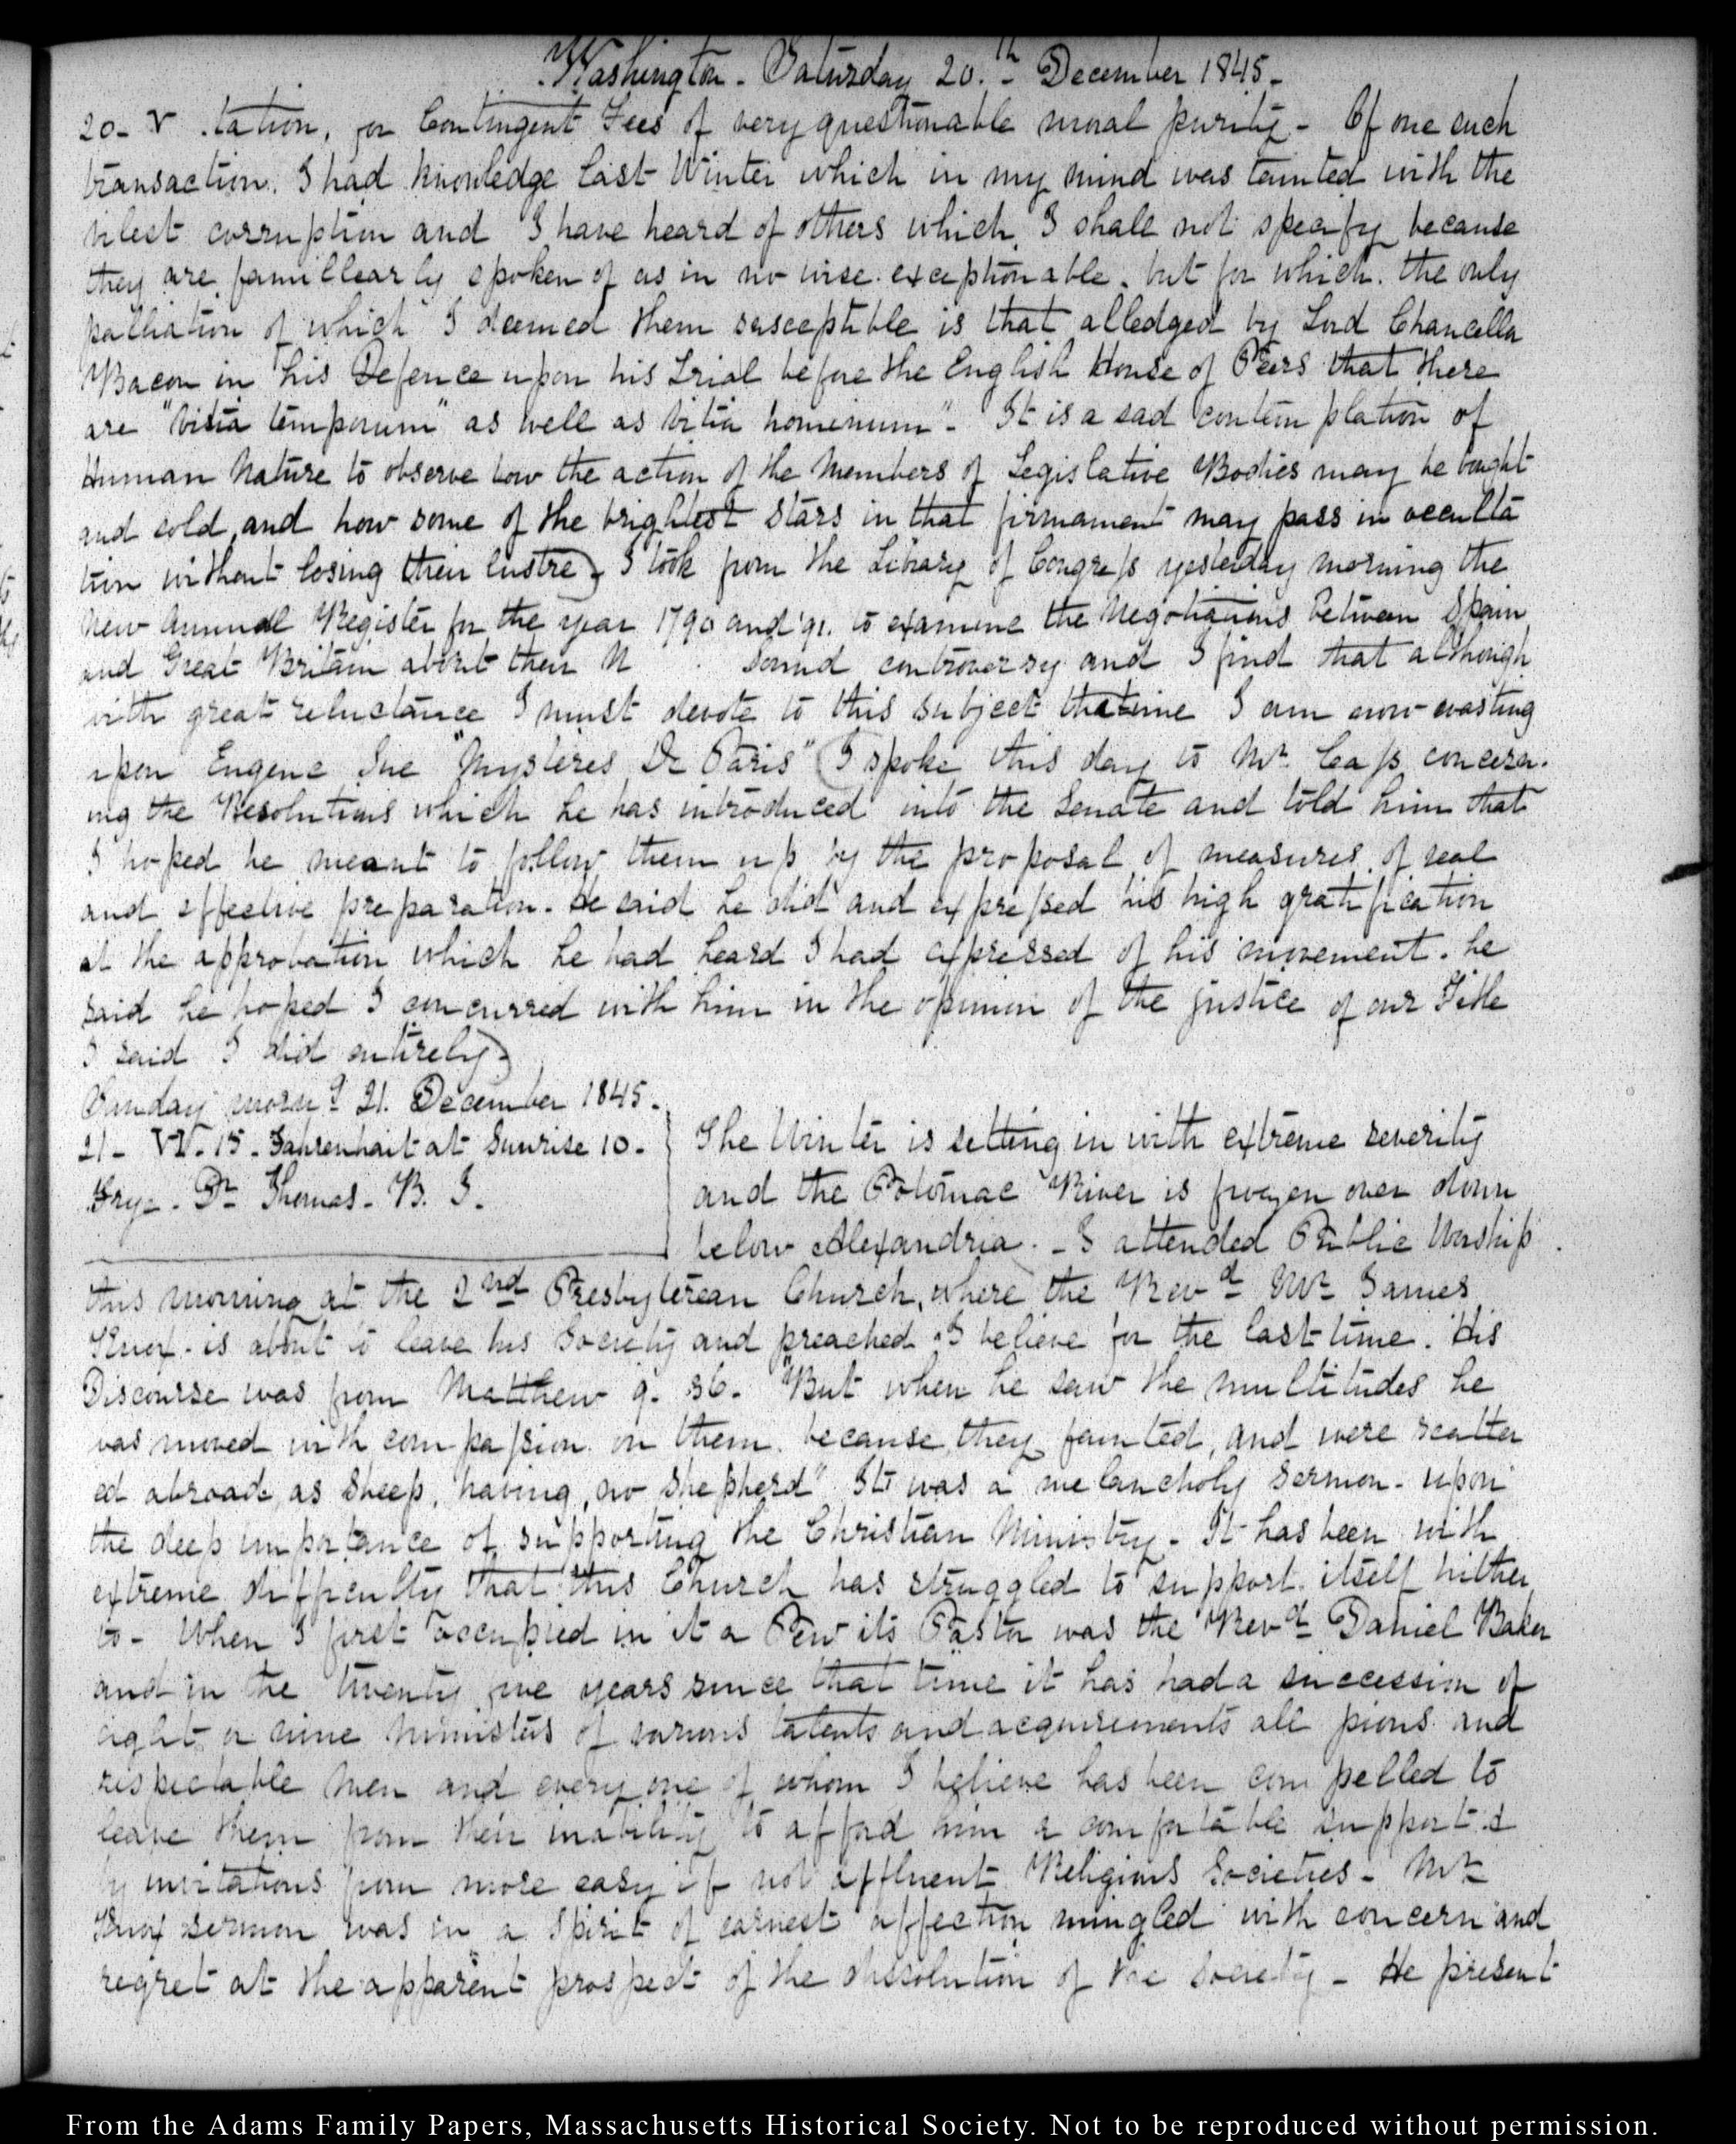 Washington - Saturday 20.th December 1845 -
20 - V .tation, for Contingent Fees of very questionable moral purity - Of one such
transaction. I had knowledge last Winter which in my mind was tainted with the
vilest corruption and I have heard of others which I shall not specify because
they are famillearly spoken of as in no wise exceptionable. but for which. the only
palliation of which I deemed them susceptible is that alledged by Lord Chancellor
Bacon in his Defence upon his Trial before the English House of Peers that there
are "vitia temporum" as well as vitia hominum" - It is a sad contemplation of
Human Nature to observe how the action of the Members of Legislative Bodies may be bought
and sold, and how some of the brightest stars in that firmament may pass in occulta
tion without losing their lustre) I took from the Library of Congress yesterday morning the
New Annual Register for the year 1790 and '91. to examine the Negotiations between Spain
and Great Britain about their N . Sound controversy and I find that although
with great reluctance I must devote to this subject the time I am now wasting
upon Eugene Sue "Mysteres De Paris" (I spoke this day to Mr. Cass concern-
ing the Resolutions which he has introduced into the Senate and told him that
I hoped he meant to follow them up by the proposal of measures of real
and effective preparation. He said he did and expressed his high gratification
at the approbation which he had heard I had expressed of his movement. he
said he hoped I concurred with him in the opinion of the justice of our Title
I said I did entirely)
Sunday morng 21. December 1845 -
21 - VI. 15 - Fahrenhait at Sunrise 10 -
Fry - Dr Thomas - B. I.
The Winter is setting in with extreme severity
and the Potomac River is frozen over down
below Alexandria. - I attended Public Worship
this morning at the 2nd Presbyterean Church, where the Revd Mr James
Knox - is about to leave his Society and preached I believe for the last time. His
Discourse was from Matthew 9. 36. "But when he saw the multitudes he
was moved with compassion on them. because they fainted, and were scatter
ed abroad, as sheep, having, no shepherd" It was a melancholy Sermon - upon
the deep importance of supporting the Christian Ministry - It has been with
extreme difficulty that this Church has struggled to support itself hither
to - When I first occupied in it a Pew its Pastor was the Revd Daniel Baker
and in the twenty five years since that time it has had a succession of
eight or nine Ministers of various talents and acquirements all pious and
respectable Men and every one of whom I believe has been compelled to
leave them from their inability to afford him a comfortable support &
by invitations from more easy if not affluent Religious Societies - Mr
Knox sermon was in a Spirit of earnest affection mingled with concern and
regret at the apparent prospect of the dissolution of the Society - He present
From the Adams Family Papers, Massachusetts Historical Society. Not to be reproduced without permission.